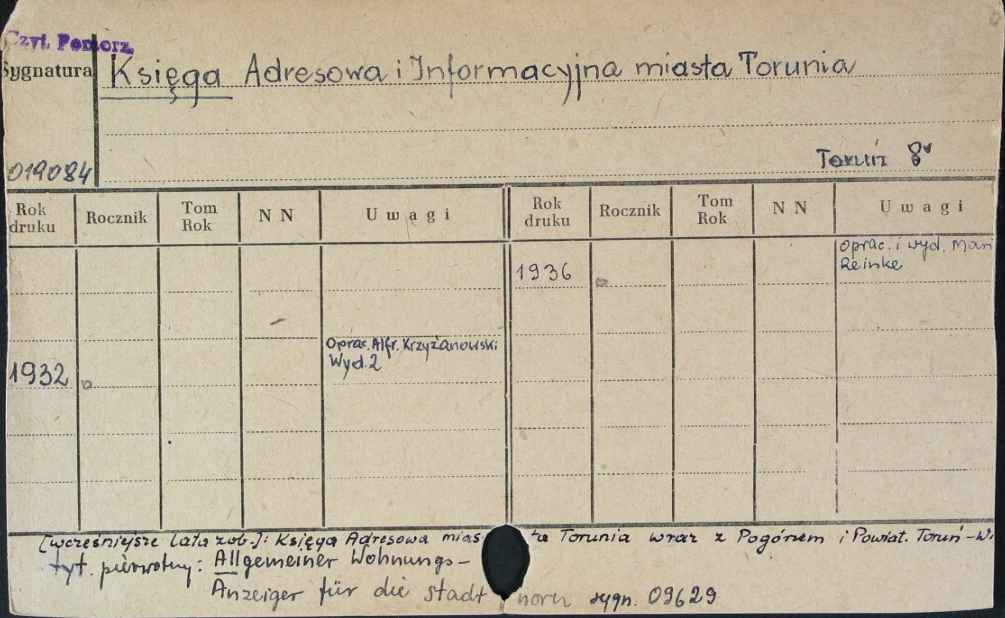 Czyt. Pomorz.
Sygnatura
Księga Adresowa i Informacyjna miasta Torunia
019084
Toruń 8°
Rok druku Rocznik Tom Rok N N Uwagi Rok druku Rocznik Tom Rok N N Uwagi
1936 Oprac. i wyd. Mari
Reinke
1932 Oprac. Alfr. Krzyżanowski
Wyd. 2
[wcześniejsze lata zob.]: Księga Adresowa mias ta Torunia wraz z Pogórzem i Powiat. Toruń-W.
tyt. pierwotny: Allgemeiner Wohnungs-
Anzeiger für die stadt horn sygn. 09629